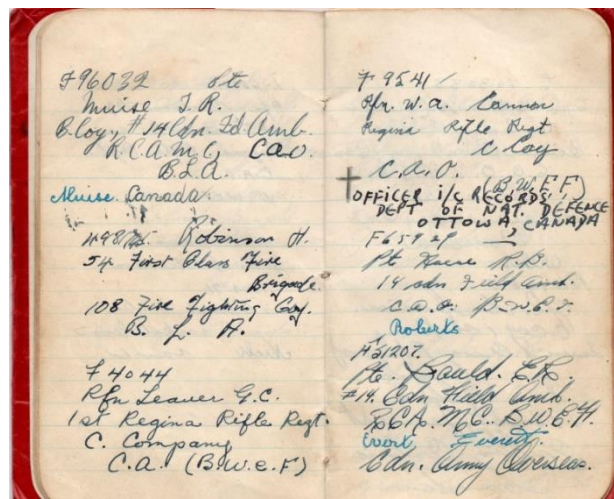 F96032 Pte
Muise J.R.
B. Coy., #14 Cdn. Fd Amb.
R.C.A.M.C, C.A.O.
B.L.A.
Muise Canada
Robinson H.
54 First Class Fire
Brigade
108 Fire Fighting Coy.
B. L. A.
F 4044
Rfn Leaver G.C.
1st Regina Rifle Regt.
C. Company
C.A. (B.W.E.F)
F 9541
Rfn. W.A. Connor
Regina Rifle Regt
C Coy
C.A.O. (B.W.E.F)
OFFICER i/c RECORDS,
DEPT OF NAT. DEFENCE
OTTOWA, CANADA
Pte R.B.
14 cdn Field Amb.
C.A.O. B.W.E.F.
Roberts
Pte. Gould. E.R.
#14. Cdn Field Amb.
R.C.A.M.C. B.W.E.F.
Everett
Cdn. Army Overseas.